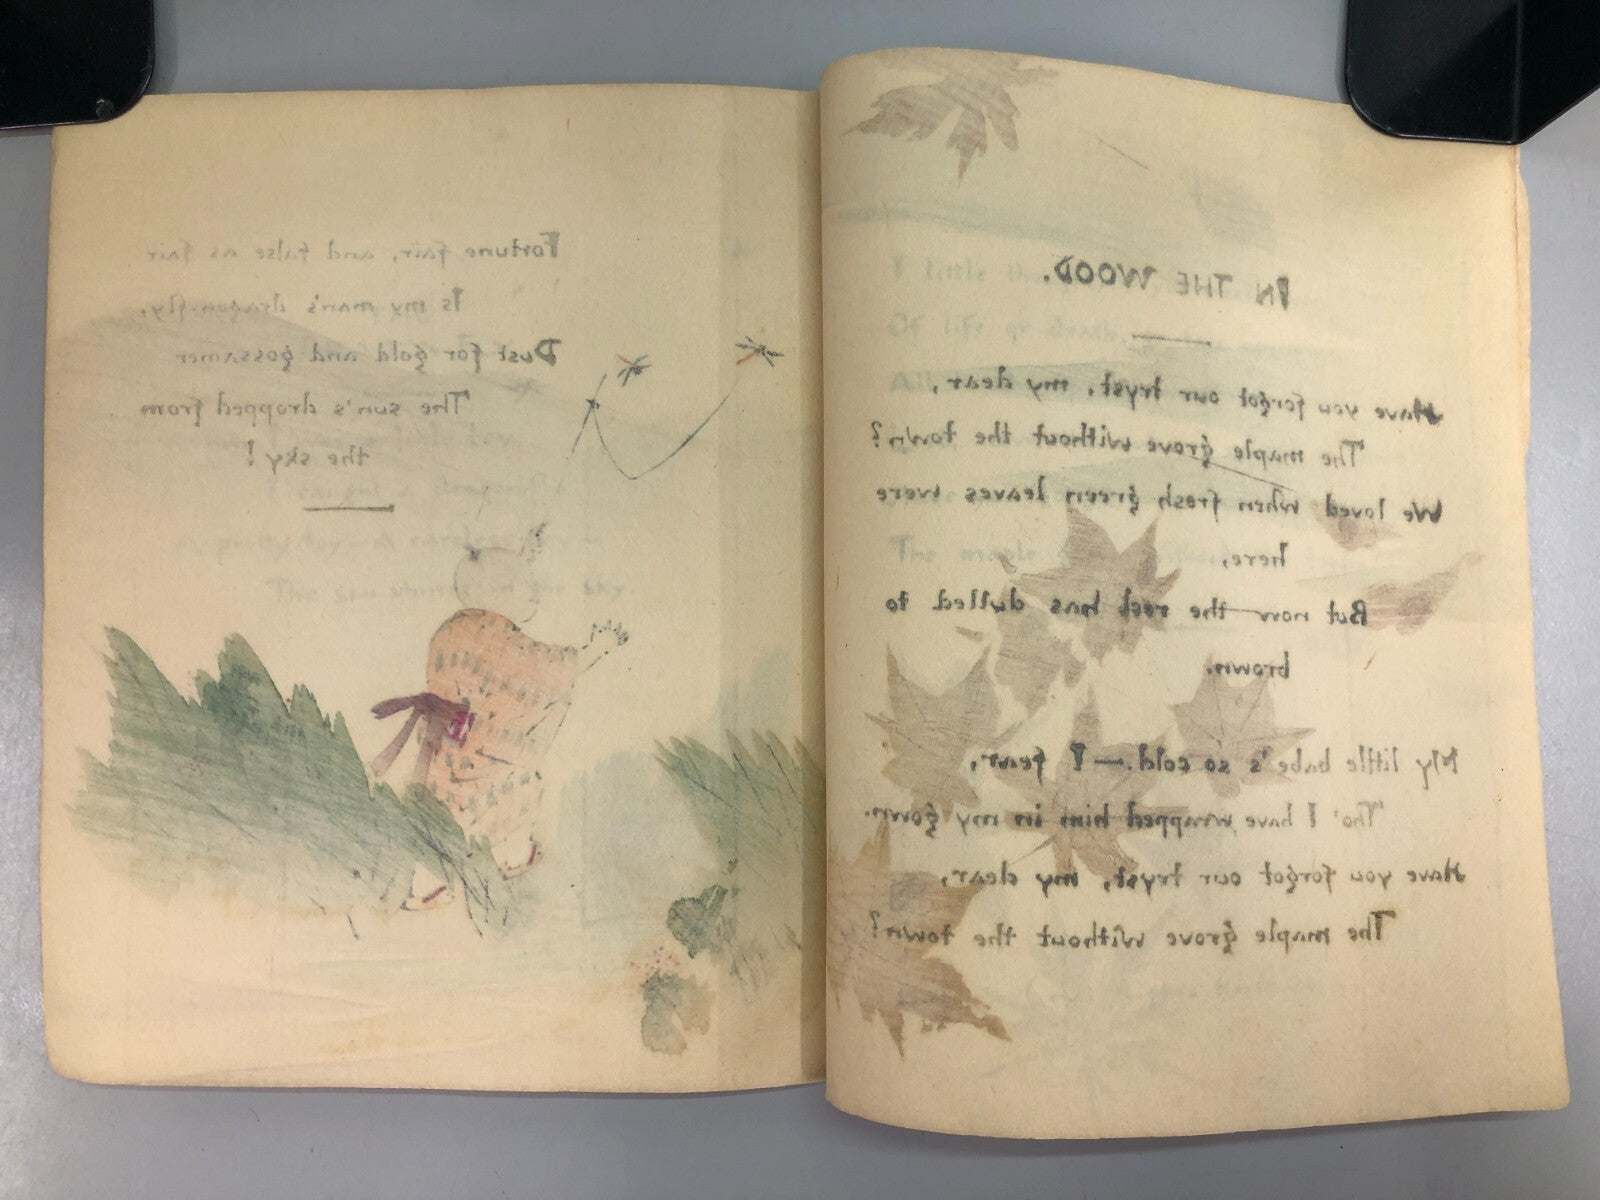 Fortune fair, and false as fair
Is my man's dragon-fly,
Dust for gold and gossamer
The sun's dropped from
the sky!
IN THE WOOD.
Have you forgot our tryst, my dear,
The maple grove without the town?
We loved when fresh green leaves were
here,
But now the red has dulled to
brown.
My little babe's so cold.—I fear,
Tho' I have wrapped him in my gown.
Have you forgot our tryst, my dear,
The maple grove without the town?